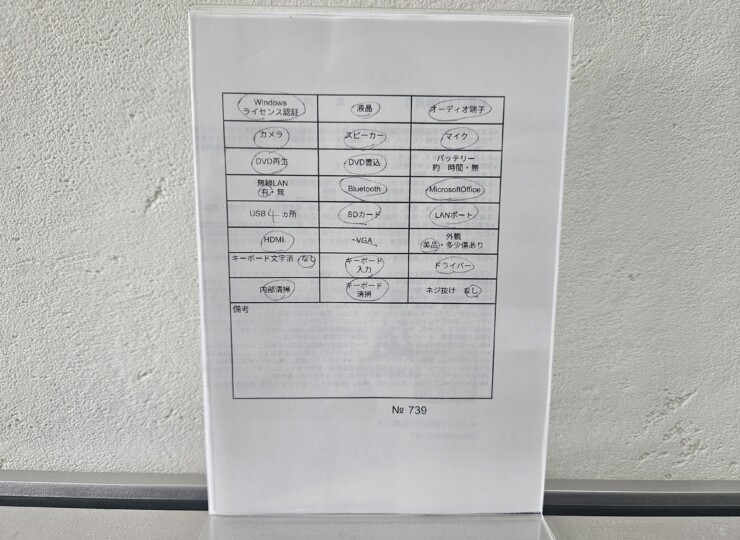 Windows
ライセンス認証
液晶
オーディオ端子
カメラ
スピーカー
マイク
DVD再生
DVD書込
バッテリー
約 時間・無
無線LAN
有・無
Bluetooth
MicrosoftOffice
USB 4 ヵ所
SDカード
LANポート
HDMI
VGA
外観
美品・多少傷あり
キーボード文字消 なし
キーボード
入力
ドライバー
内部清掃
キーボード
清掃
ネジ抜け なし
備考
№ 739